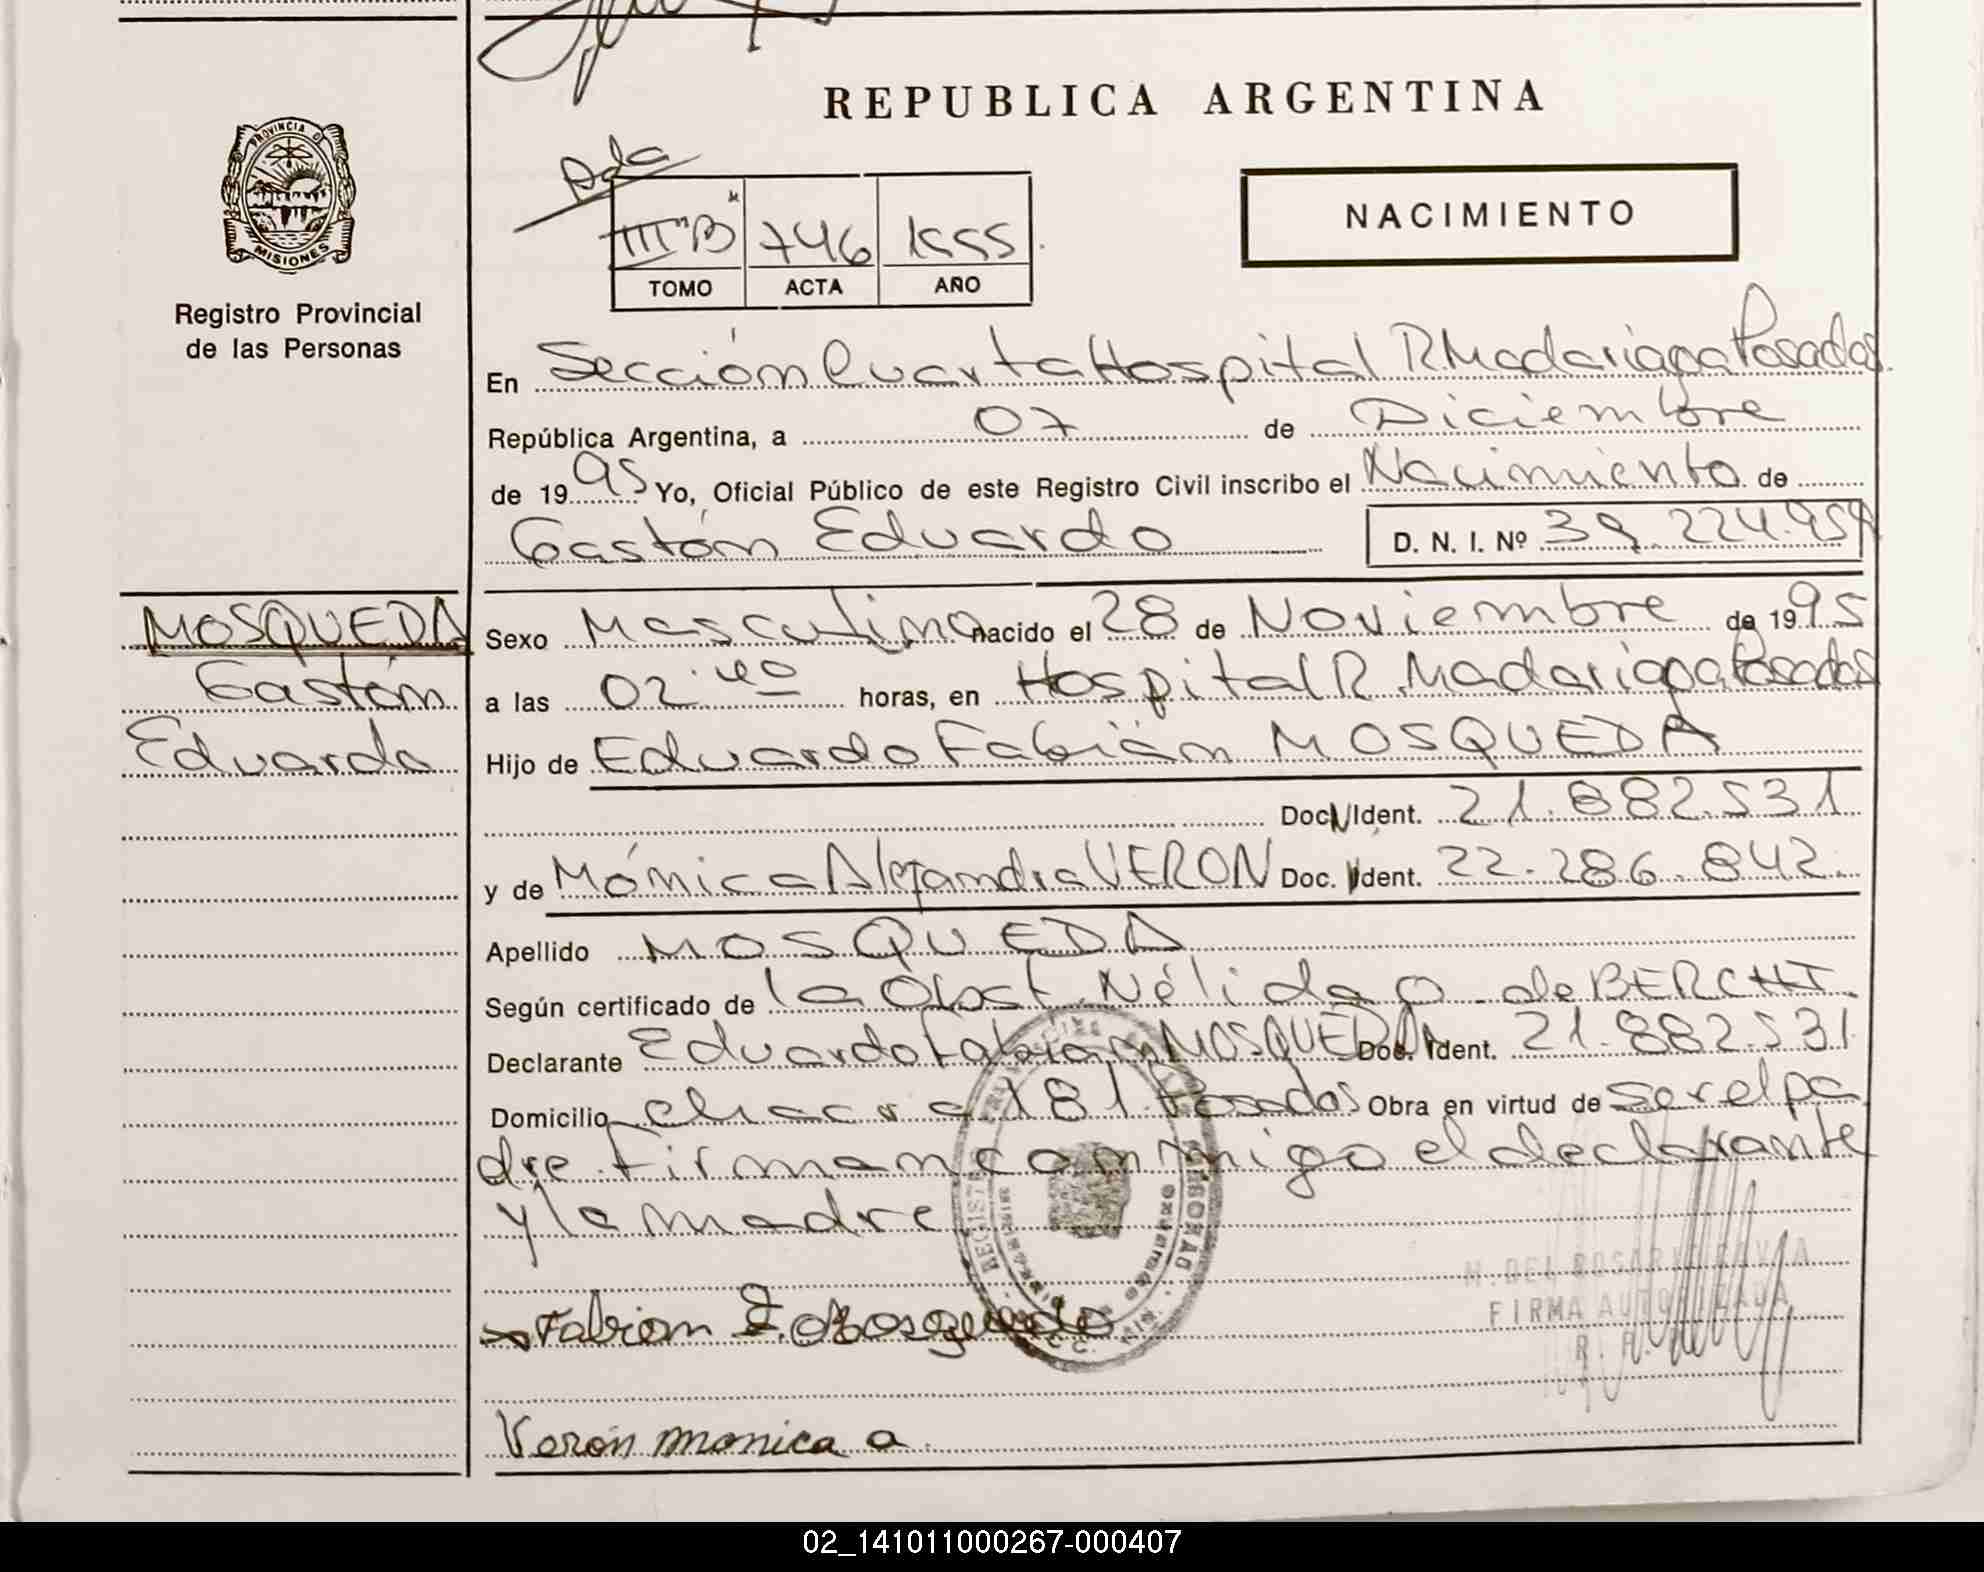 REPUBLICA ARGENTINA
PROVINCIA D
MISIONES
Registro Provincial
de las Personas
Ada
III "B" 746 1995
TOMO ACTA AÑO
NACIMIENTO
En Sección Cuarta Hospital R. Madariaga Posadas
República Argentina, a 07 de Diciembre
de 1995 Yo, Oficial Público de este Registro Civil inscribo el Nacimiento de
Gastón Eduardo D. N. I. Nº 39.224.959
MOSQUEDA
Gastón
Eduardo
Sexo Masculino nacido el 28 de Noviembre de 1995
a las 02.40 horas, en Hospital R. Madariaga Posadas
Hijo de Eduardo Fabián MOSQUEDA
Doc. N Ident. 21.882.531
y de Mónica Alejandra VERON Doc. Ident. 22.286.842
Apellido MOSQUEDA
Según certificado de la Obst. Nélida O. de BERCHI
Declarante Eduardo Fabián MOSQUEDA Doc. Ident. 21.882.531
Domicilio chacra 181 Posadas Obra en virtud de ser el pa
dre. Firman conmigo el declarante
y la madre
M. DEL ROSARIO
FIRMA AUTORIZADA
R. P.
Fabian E. Mosqueda
Verón monica a
02_141011000267-000407